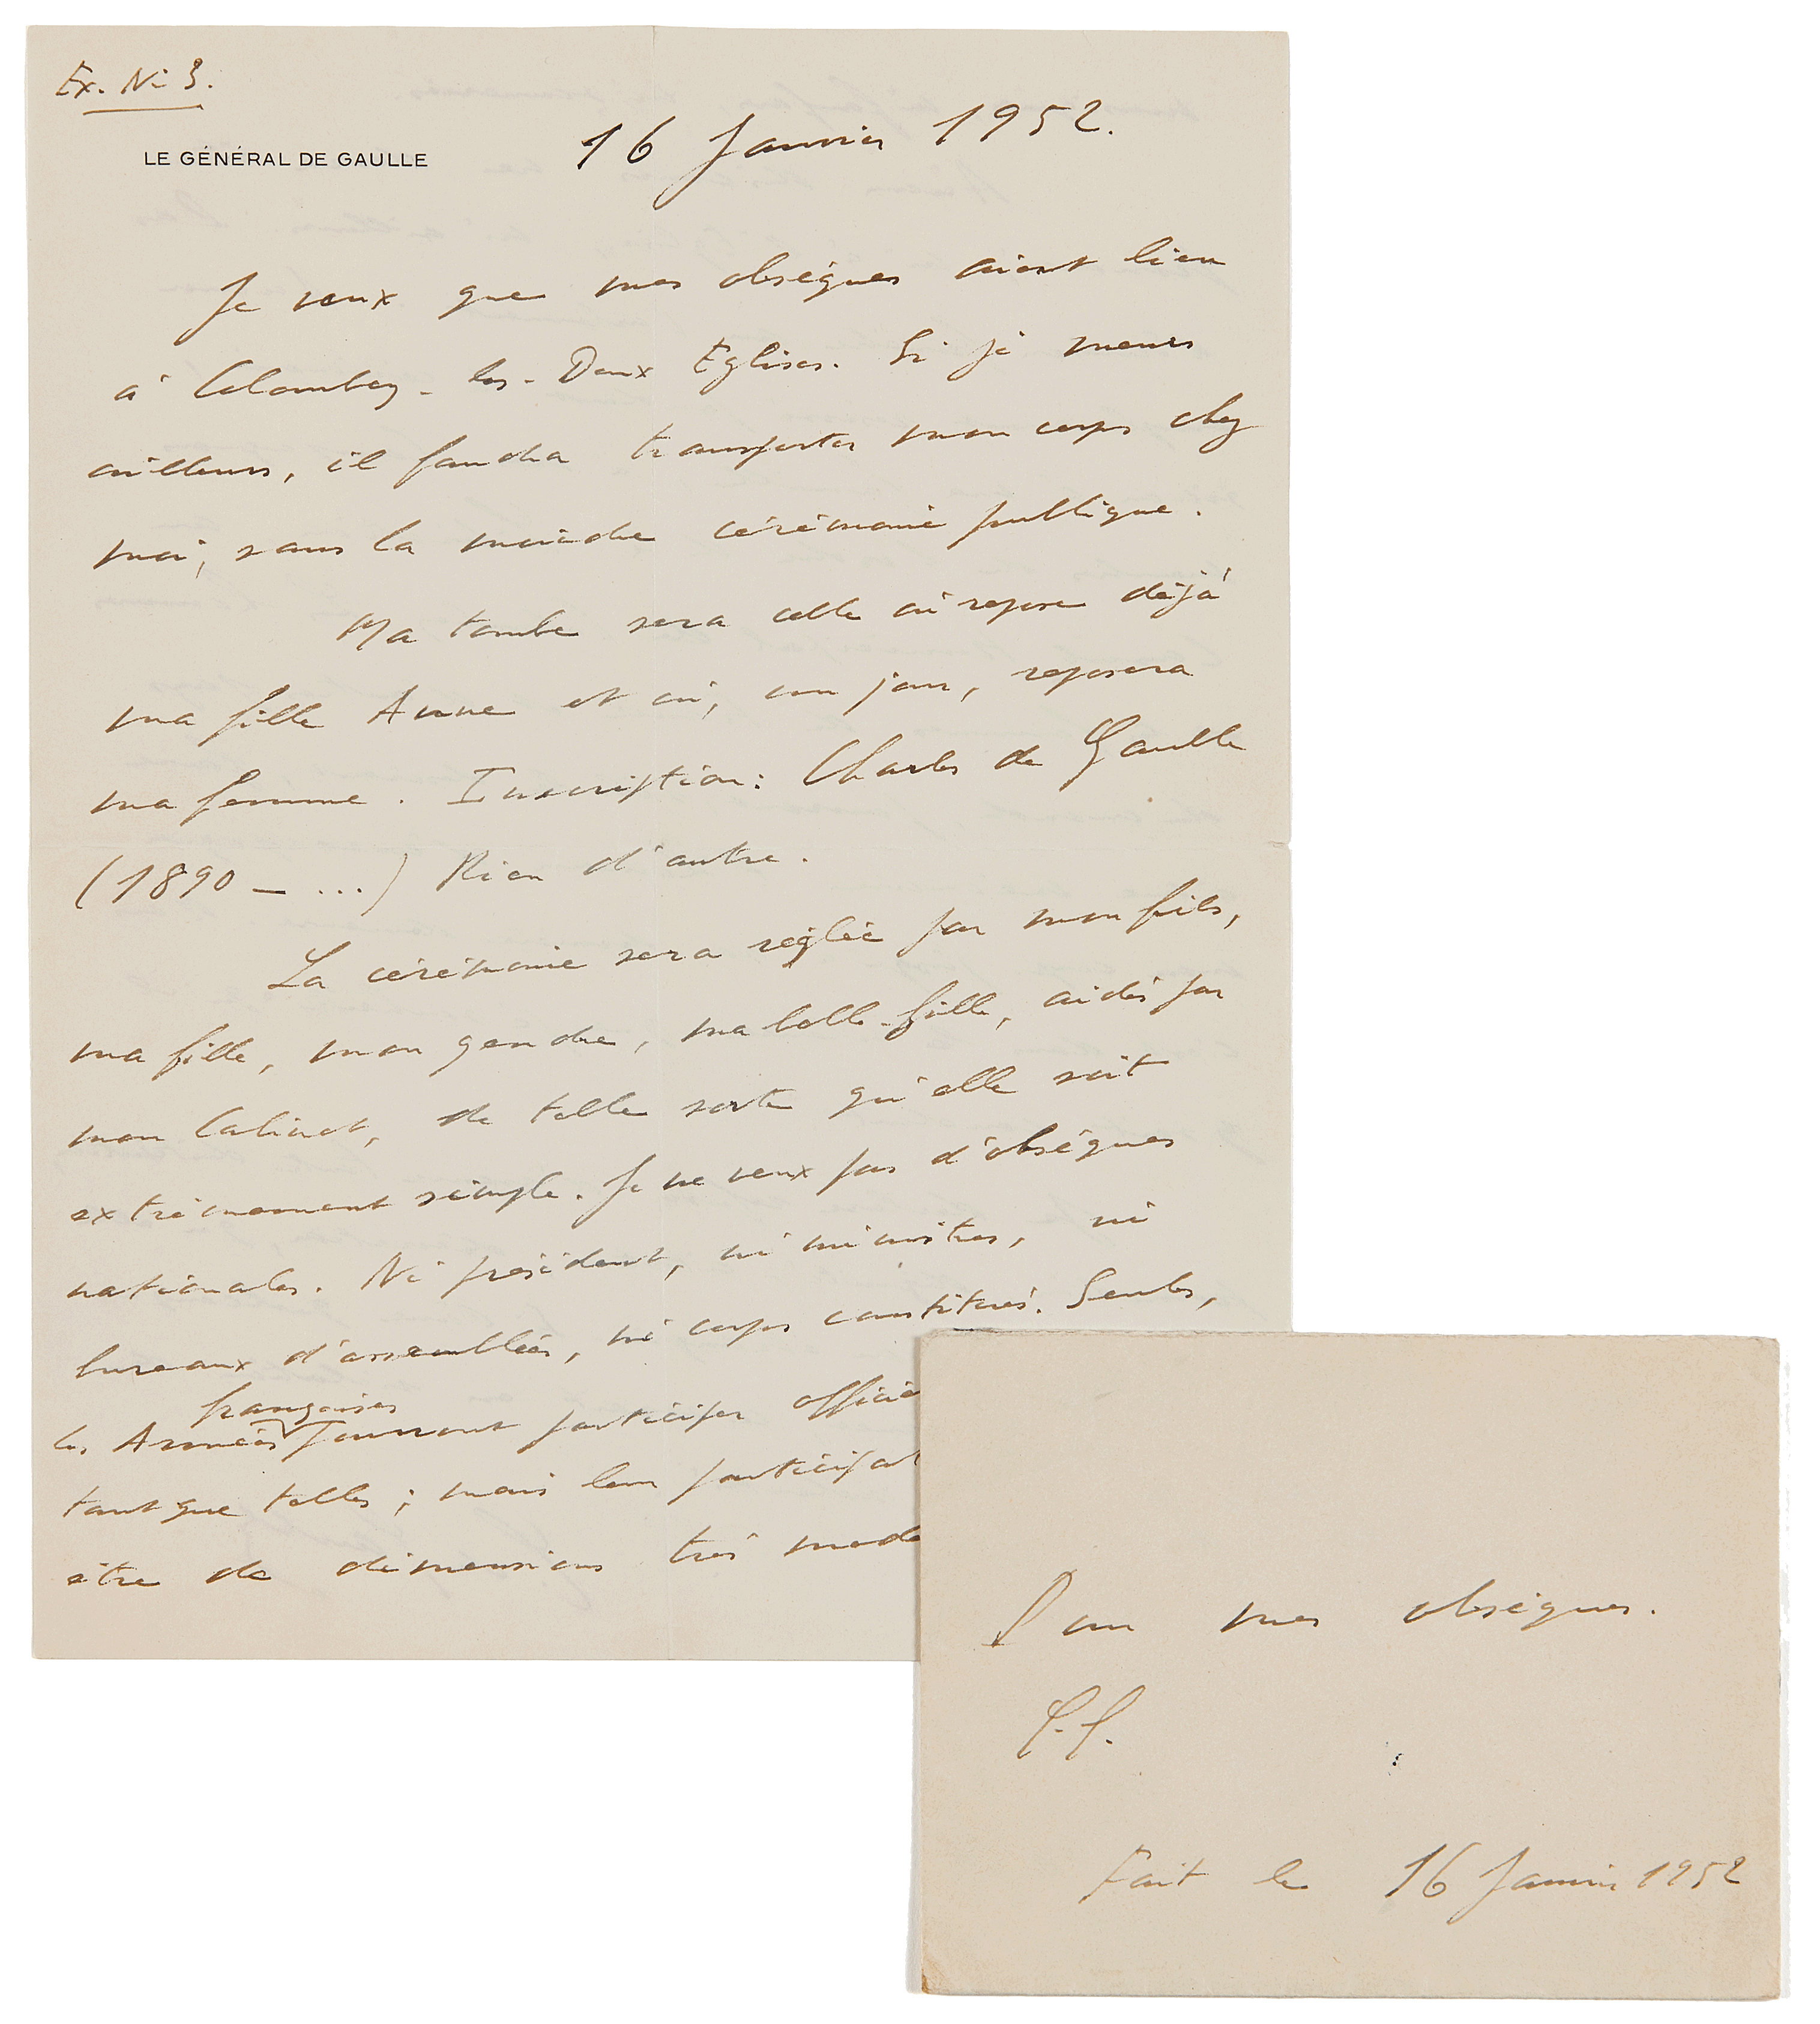 Ex. No 3.
LE GÉNÉRAL DE GAULLE
16 Janvier 1952.
Je veux que mes obsèques aient lieu
à Colombey-les-Deux Eglises. Si je meurs
ailleurs, il faudra transporter mon corps chez
moi, sans la moindre cérémonie publique.
Ma tombe sera celle où repose déjà
ma fille Anne et où, un jour, reposera
ma femme. Inscription: Charles de Gaulle
(1890 - ...) Rien d'autre.
La cérémonie sera réglée par mon fils,
ma fille, mon gendre, ma belle-fille, aidés par
mon Cabinet, de telle sorte qu'elle soit
extrêmement simple. Je ne veux pas d'obsèques
nationales. Ni président, ni ministres, ni
bureaux d'assemblées, ni corps constitués. Seules,
françaises
les Armées pourront participer officie
tant que telles ; mais leur participat
être de dimensions très mode
Pour mes obsèques.
C.G.
Fait le 16 Janvier 1952